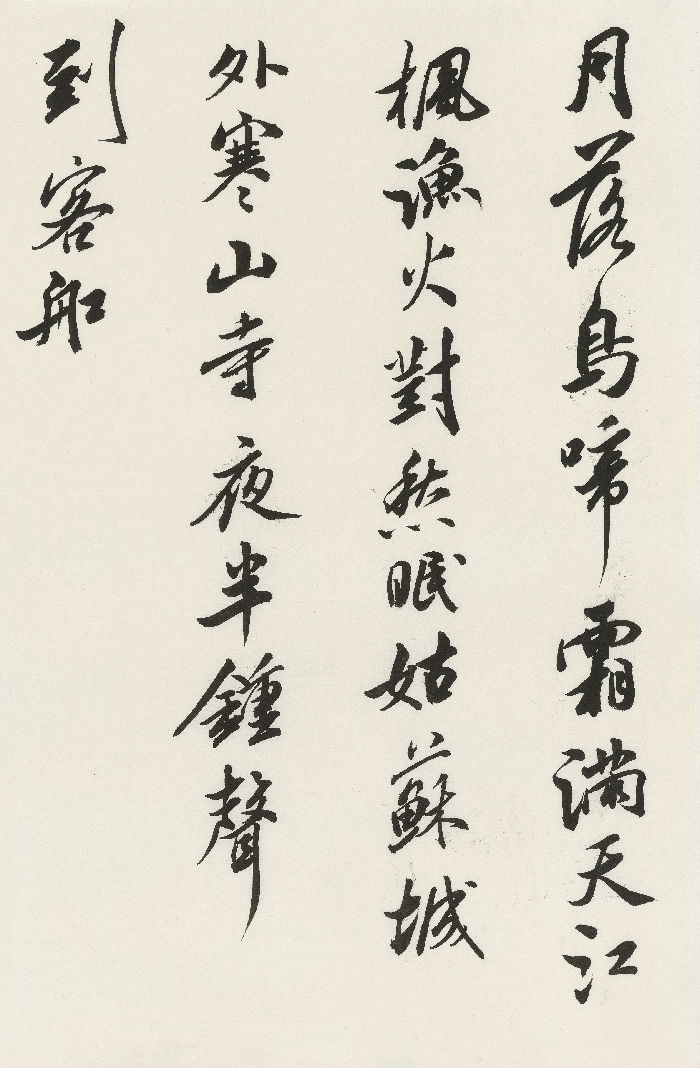 月落烏啼霜滿天江
楓漁火對愁眠姑蘇城
外寒山寺夜半鍾聲
到客船